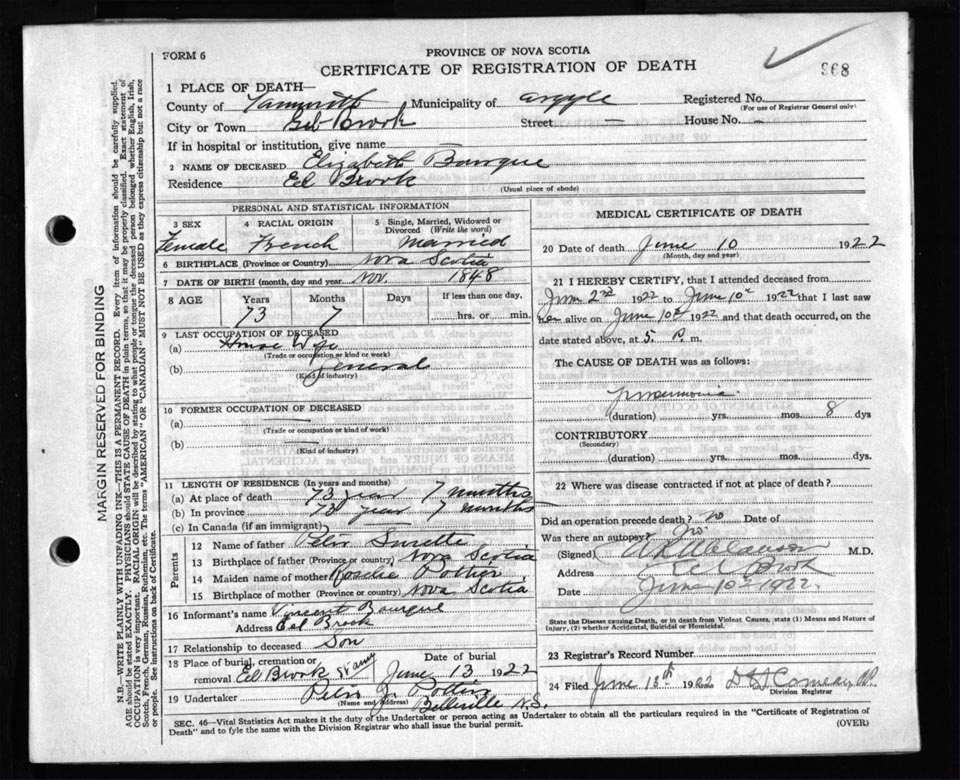 968
FORM 6
PROVINCE OF NOVA SCOTIA
CERTIFICATE OF REGISTRATION OF DEATH
1 PLACE OF DEATH—
County of Yarmouth Municipality of Argyle Registered No.
(For use of Registrar General only)
City or Town Eel Brook Street — House No. —
If in hospital or institution, give name —
2 NAME OF DECEASED Elizabeth Bourque
Residence Eel Brook
(Usual place of abode)
PERSONAL AND STATISTICAL INFORMATION
3 SEX Female
4 RACIAL ORIGIN French
5 Single, Married, Widowed or Divorced (Write the word) Married
6 BIRTHPLACE (Province or Country) Nova Scotia
7 DATE OF BIRTH (month, day and year) Nov. 1848
8 AGE Years Months Days If less than one day,
73 7 hrs. or min.
9 LAST OCCUPATION OF DECEASED
(a) House Wife
(Trade or occupation or kind or work)
(b) General
(Kind of industry)
10 FORMER OCCUPATION OF DECEASED
(a) —
(Trade or occupation or kind of work)
(b) —
(Kind of industry)
11 LENGTH OF RESIDENCE (In years and months)
(a) At place of death 73 year 7 months
(b) In province 73 year 7 months
(c) In Canada (if an immigrant)
Parents
12 Name of father Peter Surette
13 Birthplace of father (Province or country) Nova Scotia
14 Maiden name of mother Rosalie Pottier
15 Birthplace of mother (Province or country) Nova Scotia
16 Informant's name Vincent Bourque
Address Eel Brook
17 Relationship to deceased Son
18 Place of burial, cremation or removal Eel Brook Date of burial June 13 1922
19 Undertaker Peter J. Pottier
(Name and Address) Belleville N.S.
MEDICAL CERTIFICATE OF DEATH
20 Date of death June 10 1922
(Month, day and year)
21 I HEREBY CERTIFY, that I attended deceased from
June 2nd 1922 to June 10th 1922 that I last saw
her alive on June 10th 1922 and that death occurred, on the
date stated above, at 5. P. m.
The CAUSE OF DEATH was as follows:
pneumonia
(duration) yrs. mos. 8 dys
CONTRIBUTORY
(Secondary)
(duration) yrs. mos. dys.
22 Where was disease contracted if not at place of death?
Did an operation precede death? no Date of
Was there an autopsy? no
(Signed) M.D.
Address Eel Brook
Date June 10th 1922.
State the Disease causing Death, or in death from Violent Causes, state (1) Means and Nature of Injury, (2) whether Accidental, Suicidal or Homicidal.
23 Registrar's Record Number
24 Filed June 13th 1922
Division Registrar
SEC. 46—Vital Statistics Act makes it the duty of the Undertaker or person acting as Undertaker to obtain all the particulars required in the "Certificate of Registration of
Death" and to fyle the same with the Division Registrar who shall issue the burial permit. (OVER)
MARGIN RESERVED FOR BINDING
N.B.—WRITE PLAINLY WITH UNFADING INK—THIS IS A PERMANENT RECORD. Every item of information should be carefully supplied.
AGE should be stated EXACTLY. PHYSICIANS should STATE CAUSE OF DEATH in plain terms, so that it may be properly classified. Exact statement of
OCCUPATION is very important. RACIAL ORIGIN will be described by stating to what people or tongue the deceased person belonged whether English, Irish,
Scotch, French, German, Russian, Ruthenian, etc. The terms "AMERICAN" OR "CANADIAN" MUST NOT BE USED as they express citizenship but not a race
or people. See instructions on back of Certificate.